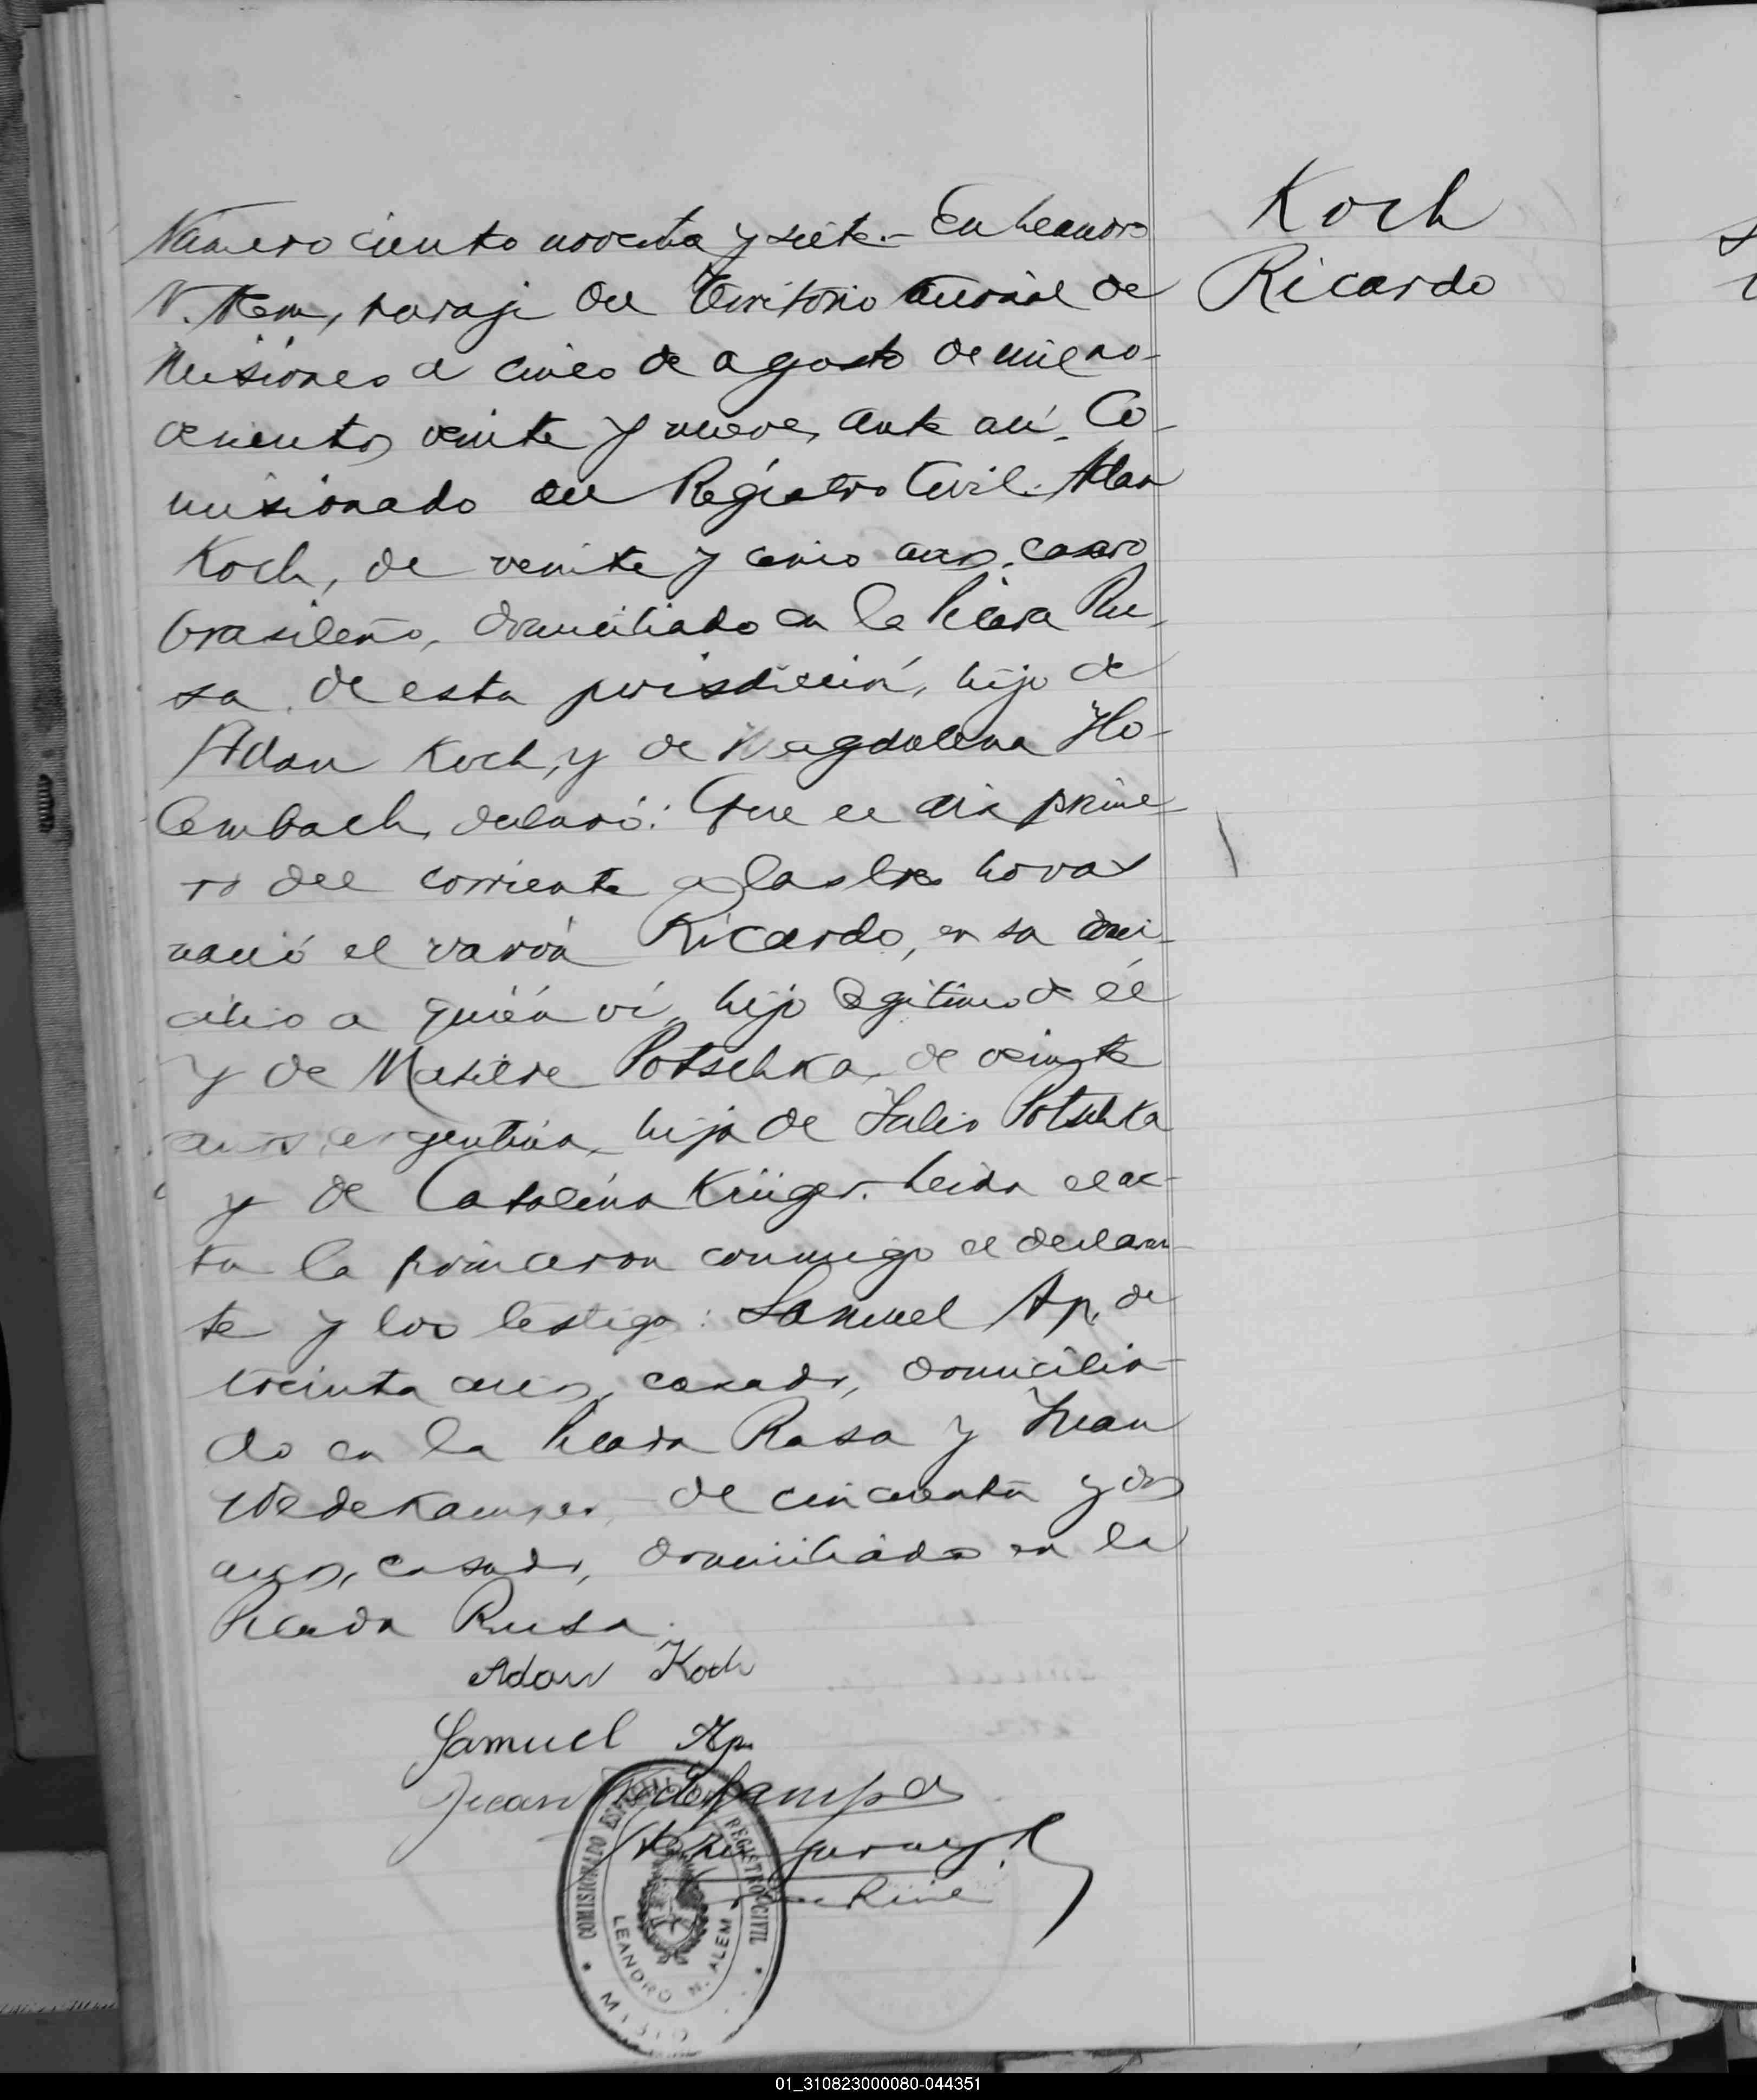 Número ciento noventa y siete.- En Leandro
N. Alem, paraje del Territorio Nacional de
Misiones a cinco de agosto de mil no-
vecientos veinte y nueve, ante mí, Co-
misionado del Registro Civil. Adan
Koch, de veinte y cinco años, casado
brasileño, domiciliado en la Picada Ru-
sa, de esta jurisdicción, hijo de
Adan Koch, y de Magdalena Ho-
lembach, declaró: Que el día prime-
ro del corriente a las tres horas
nació el varón Ricardo, en su domi-
cilio a quién ví, hijo legítimo de él
y de Matilde Potschka, de veinte
años, argentina, hija de Julio Potschka
y de Catalina Krüger. Leida el ac-
ta la firmaron conmigo el declaran-
te y los testigos: Samuel Ap, de
treinta años, casado, domicilia-
do en la Picada Rusa y Juan
Wedekamper, de cincuenta y dos
años, casado, domiciliado en la
Picada Rusa.
Koch
Ricardo
Adam Koch
Samuel Ap.
Juan
COMISIONADO ESPECIAL DEL REGISTRO CIVIL
LEANDRO N. ALEM
MISIO
01_310823000080-044351